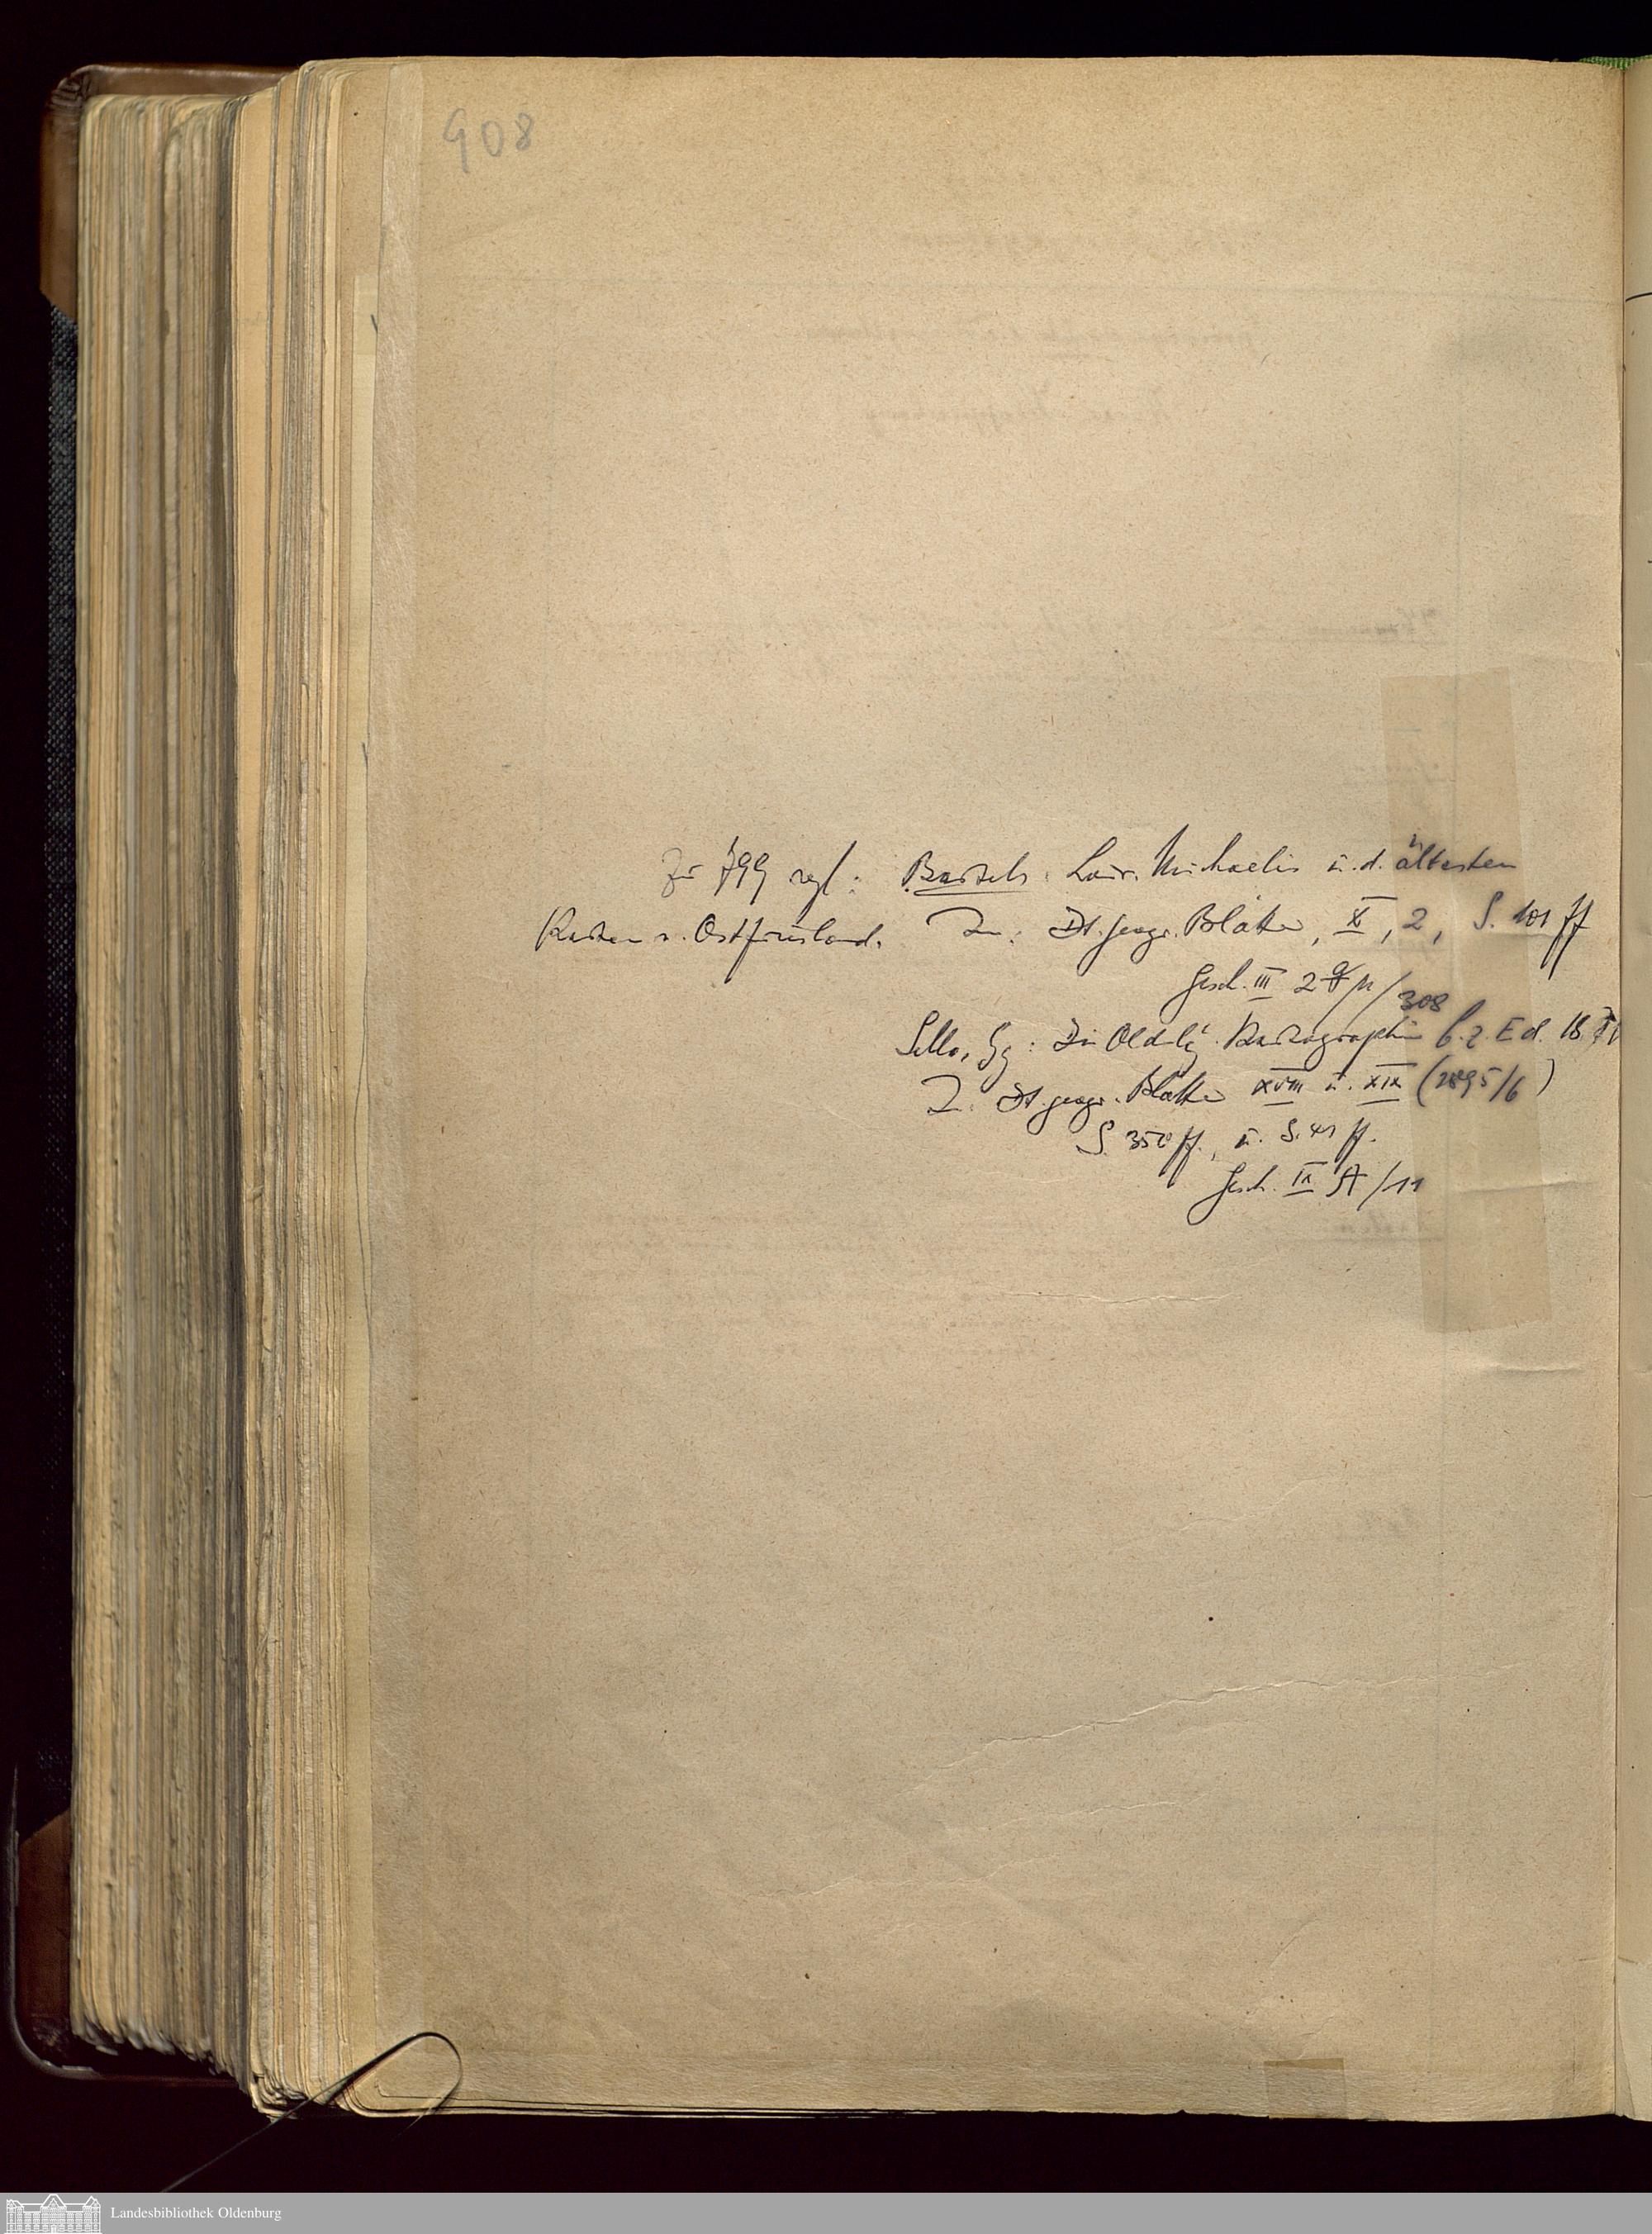 908
Zu 799 vgl: Bartels: Laur. Michaelis u. d. ältesten
Karten v. Ostfriesland. In: Dt. geogr. Blätter, X, 2, S. 101 ff
Gesch. III 2 /308
Sello, Gg: Die Oldbg. Kartographie b. z. E d. 18. Jh
In: Dt. geogr. Blätter XVIII u. XIX (1895/6)
S. 350 ff., u. S. 41 ff.
Gesch. IX A /11
Landesbibliothek Oldenburg